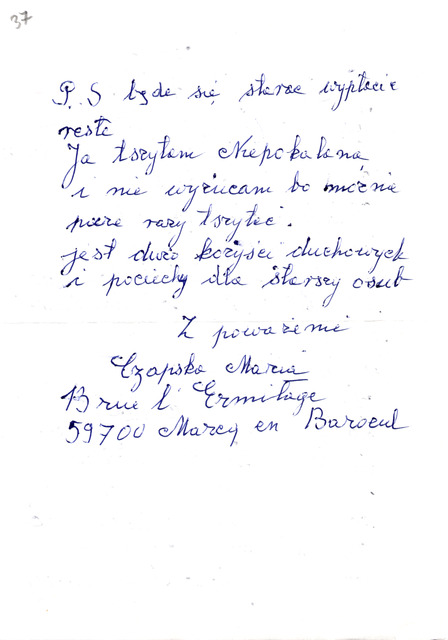 37
P. S będe się starac wypłacic
reste
Ja tszytam Niepokalaną
i nie wyżucam bo možnie
pare razy tszytać.
jest dużo kożyści duchowych
i pociechy dla starszy osub
Z powarzenie
Czapska Maria
13 rue l'Ermitage
59700 Marcq en Baroeul